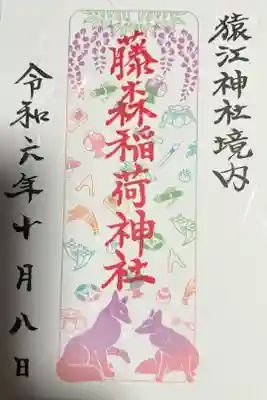 猿江神社境内
藤森稲荷神社
令和六年十月八日